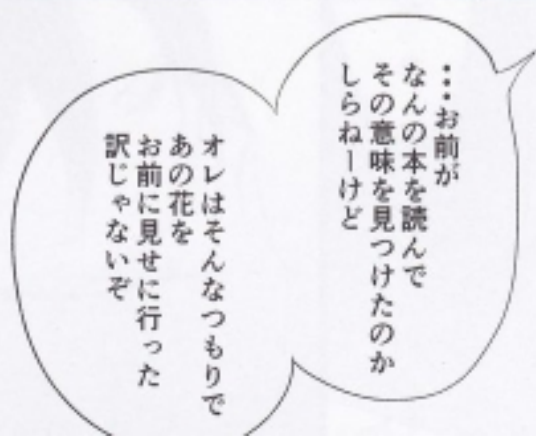 …お前が
なんの本を読んで
その意味を見つけたのか
しらねーけど
オレはそんなつもりで
あの花を
お前に見せに行った
訳じゃないぞ